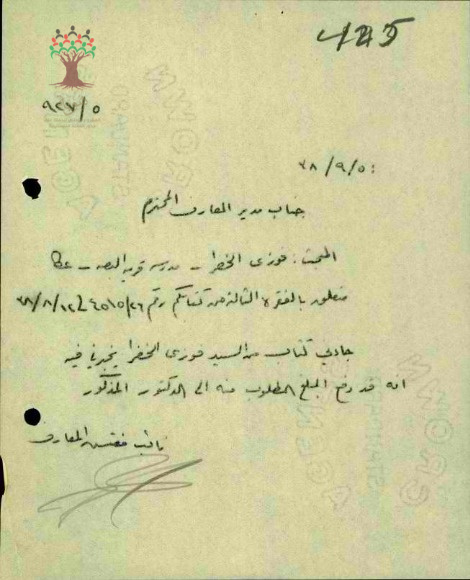 425
٩٢٧/٥
٣٨/٩/٥
جناب مدير المعارف المحترم
المبحث: فوزي الخضرا – مدرسة قرية البصه – عكا
بالفقرة الثالثة من كتابكم رقم
جاءني كتاب من السيد فوزي الخضرا يخبرني فيه
انه قد دفع المبلغ المطلوب منه الى الدكتور المذكور
نائب مفتش المعارف